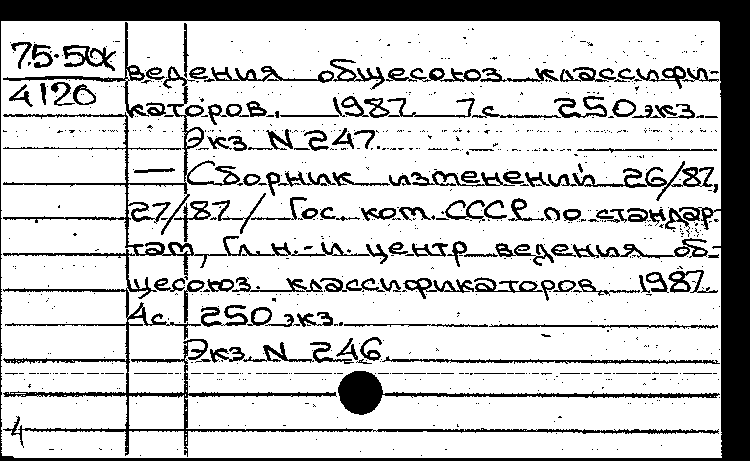 75-50к
4120
ведения общесоюз классифи-
каторов. 1987. 7с 250 экз.
Экз N 247.
— Сборник изменений 26/87,
27/87 / Гос. ком. СССР по стандар-
там, Гл. н.-и. центр ведения об-
щесоюз. классификаторов. 1987.
4с. 250 экз.
Экз. N 246.
4